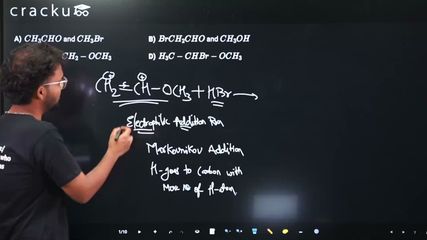 cracku
A) CH₃CHO and CH₃Br
B) BrCH₂CHO and CH₃OH
CH₂ − OCH₃
D) H₃C − CHBr − OCH₃
CH₂ = CH − OCH₃ + HBr ⟶
Electrophilic Addition Rxn
Markovnikov Addition
H-goes to Carbon with
More no of H-atom
1/10